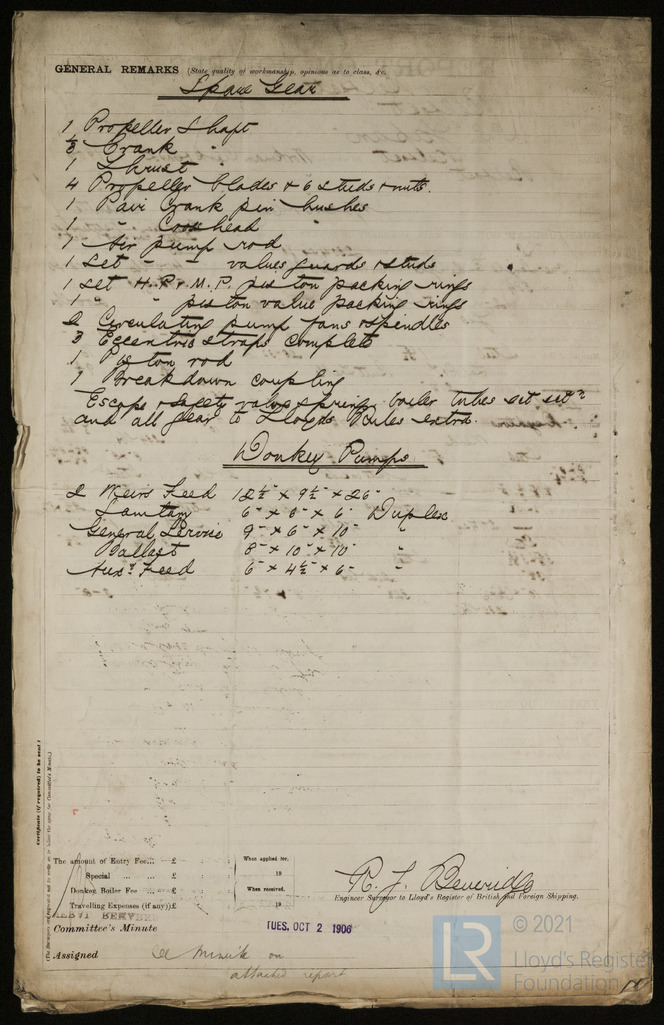 GENERAL REMARKS (State quality of workmanship, opinions as to class, &c.
Spare Gear
1 Propeller Shaft
1/3 Crank "
1 Thrust "
4 Propeller blades & 6 studs & nuts.
1 Pair Crank pin bushes
1 " Crosshead "
1 Air pump rod
1 Set " " valves guards & studs
1 set H.P. & M.P. piston packing rings
1 " " piston valve packing rings
2 Circulating pump fans & spindles
3 Eccentric straps complete
1 Piston rod
1 Breakdown coupling
Escape & safety valve springs boiler tubes set
and all gear to Lloyds Rules extra.
Donkey Pumps
2 Weirs Feed 12½" x 9½" x 26"
Sanitary 6" x 6" x 6" Duplex
General Service 9" x 6" x 10" "
Ballast 8" x 10" x 10" "
Auxy Feed 6" x 4½" x 6" "
Certificate (if required) to be sent to
The amount of Entry Fee... £ : : When applied for,
Special ... ... £ : : 19
Donkey Boiler Fee ... ... £ : : When received,
Travelling Expenses (if any) £ : : 19
R. J. Beveridge
Engineer Surveyor to Lloyd's Register of British and Foreign Shipping.
Committee's Minute
TUES. OCT 2 1906
Assigned
See minute on
attached report
LR
© 2021
Lloyd's Register
Foundation